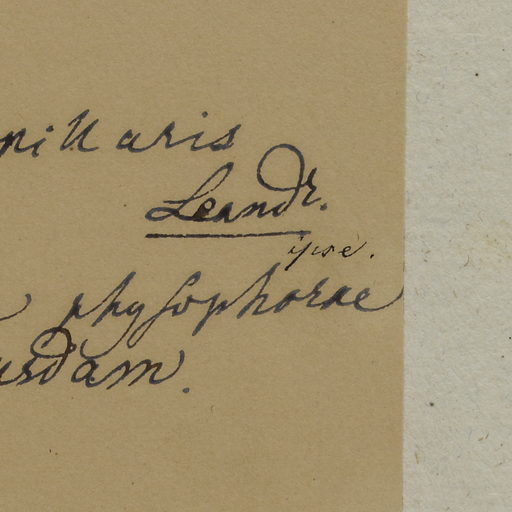 pillaris
Leandr.
ipse.
physophorae
usdam.